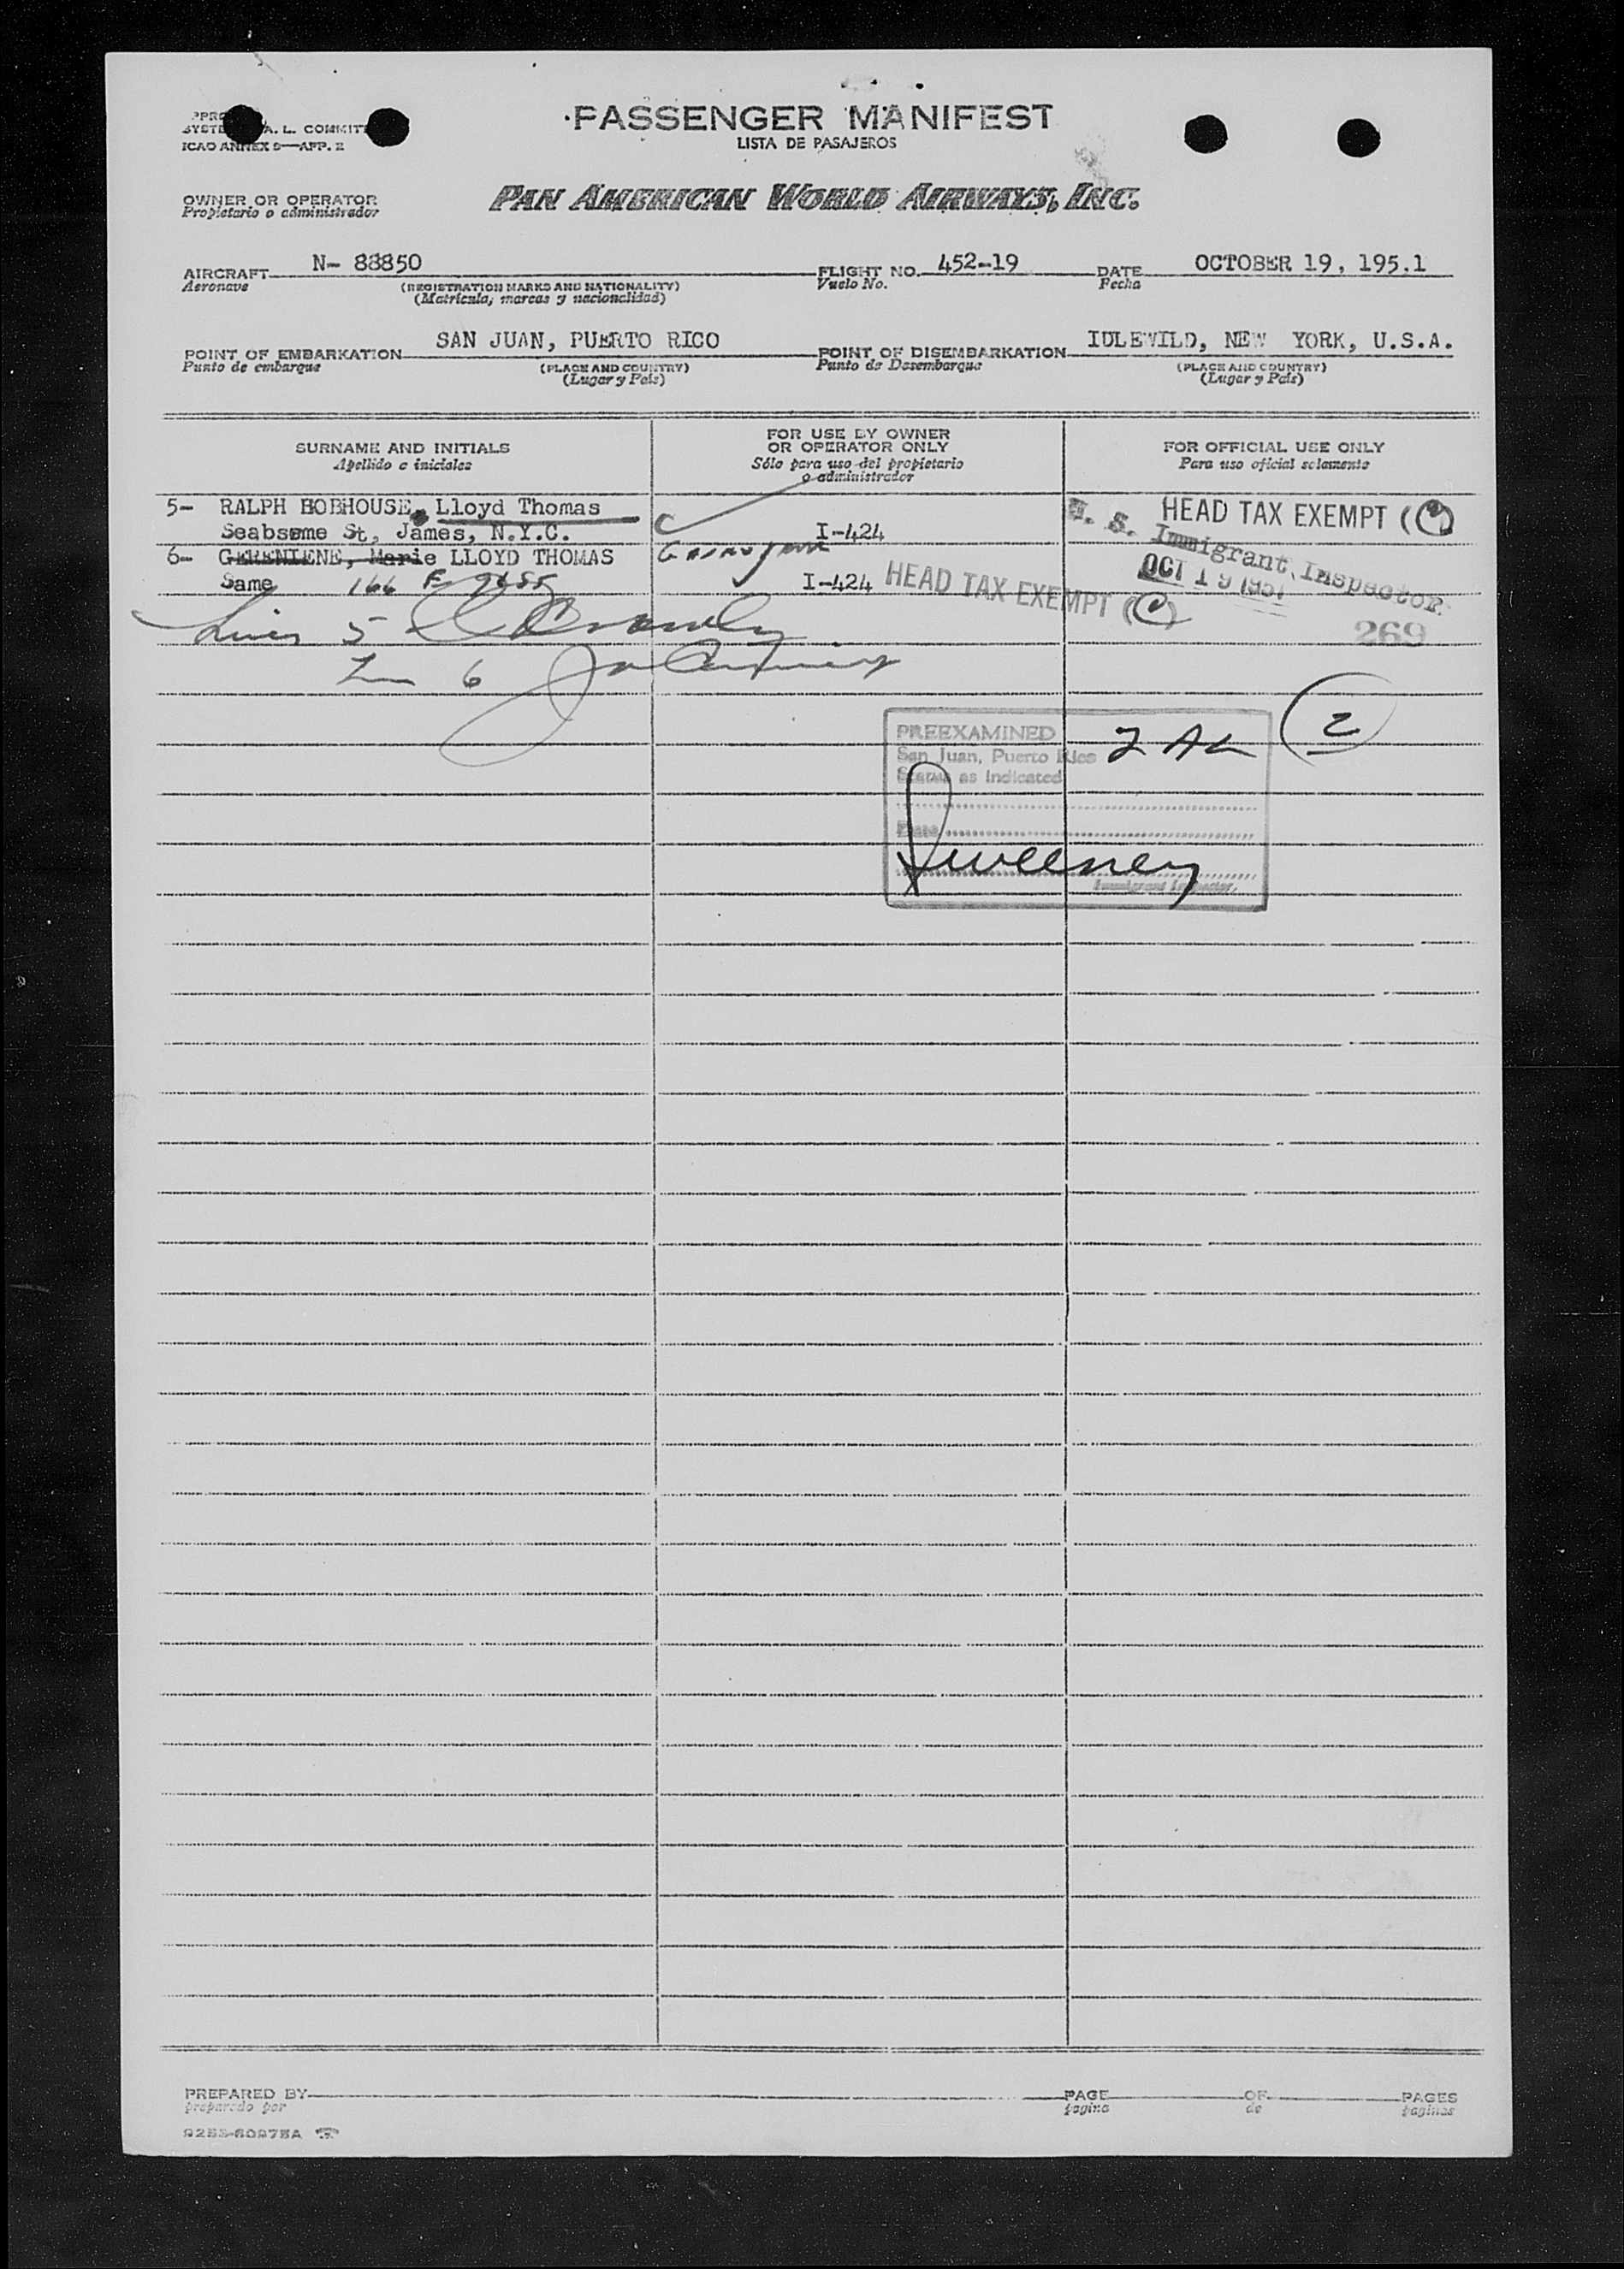 PASSENGER MANIFEST
LISTA DE PASAJEROS
A. L. COMMIT
ICAO ANNEX 9—APP. 2
OWNER OR OPERATOR
Propietario o administrador
PAN AMERICAN WORLD AIRWAYS, INC.
AIRCRAFT N- 88850 FLIGHT NO. 452-19 DATE OCTOBER 19, 195.1
Aeronave (REGISTRATION MARKS AND NATIONALITY) Vuelo No. Fecha
(Matrícula, marcas y nacionalidad)
POINT OF EMBARKATION SAN JUAN, PUERTO RICO POINT OF DISEMBARKATION IDLEWILD, NEW YORK, U.S.A.
Punto de embarque (PLACE AND COUNTRY) Punto de Desembarque (PLACE AND COUNTRY)
(Lugar y País) (Lugar y País)
SURNAME AND INITIALS
Apellido e iniciales
FOR USE BY OWNER
OR OPERATOR ONLY
Sólo para uso del propietario
o administrador
FOR OFFICIAL USE ONLY
Para uso oficial solamente
5- RALPH HOBHOUSE, Lloyd Thomas HEAD TAX EXEMPT (C)
Seabsome St, James, N.Y.C. C I-424 U. S. Immigrant Inspector
6- GERENIENE, Marie LLOYD THOMAS OCT 19 1951
Same 166 I-424 HEAD TAX EXEMPT (C)
269
Lines 5
6
PREEXAMINED 2 (2)
San Juan, Puerto Rico
Status as Indicated
Date
Sweeney
Immigrant Inspector
PREPARED BY PAGE OF PAGES
preparado por página de páginas